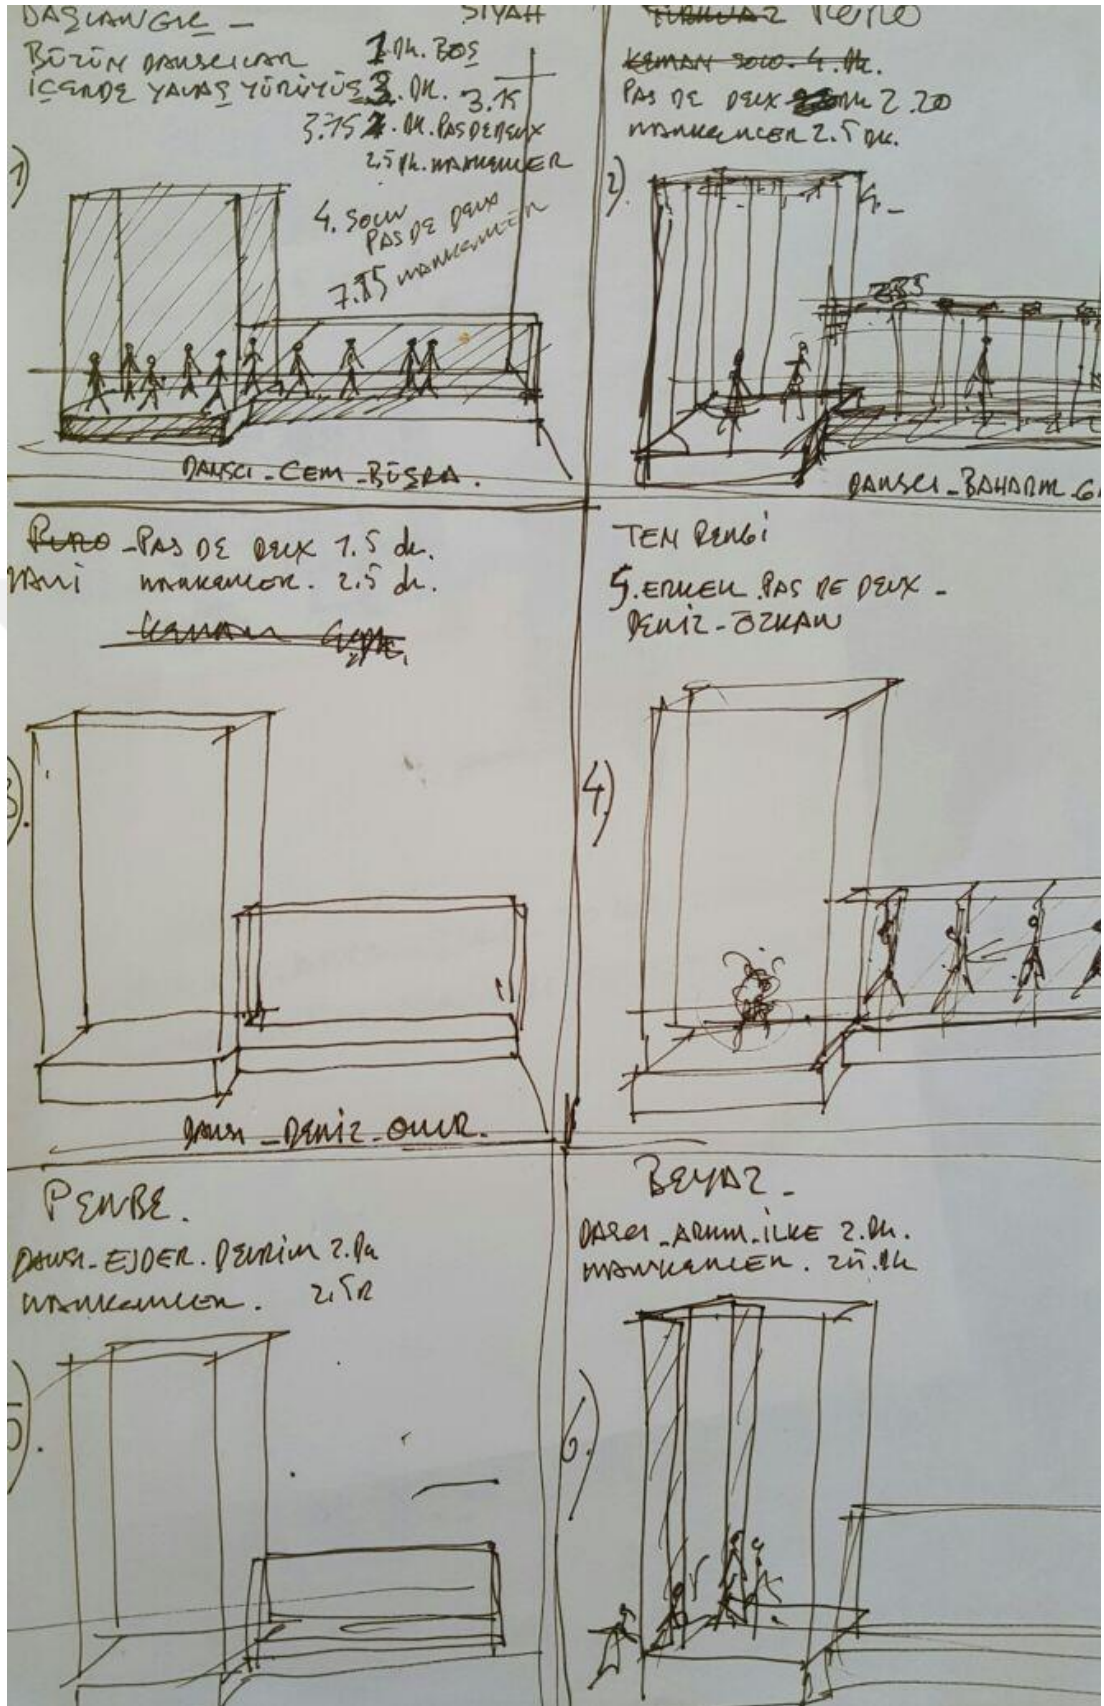 BAŞLANGIÇ - SİYAH
BÜTÜN DANSÇILAR 1 DK. BOŞ
İÇERDE YAVAŞ YÜRÜYÜŞ 3. DK. 3.15
3.15 2. DK. PAS DE DEUX
2,5 DK. MANKENLER
1)
4. SOLO
PAS DE DEUX
MANKENLER
DANSÇI - CEM - BÜŞRA.
TURKUAZ
KEMAN SOLO. 4. DK.
PAS DE DEUX 2.20
MANKENLER 2.5 DK.
2).
DANSÇI - BAHADIR -
PAS DE DEUX 1.5 dk.
MAVİ MANKENLER. 2.5 dk.
KEMAN
3).
DANSÇI - DENİZ - ONUR.
TEN RENGİ
5. ERKEK PAS DE DEUX -
DENİZ - ÖZKAN
4)
PEMBE.
DANSÇI - EJDER. DEVRİM 2. Dk
MANKENLER. 2,5
5).
BEYAZ -
- İLKE 2. DK.
MANKENLER. DK
6.)